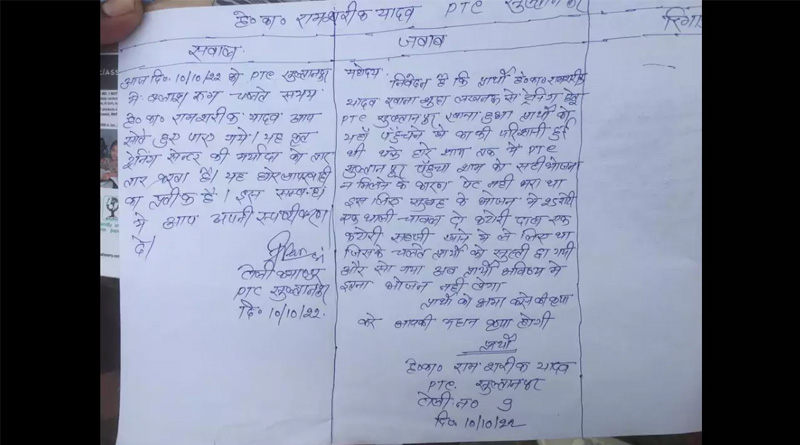 हे० का० रामशरीक यादव PTC सुल्तानपुर
सवाल
जवाब
आज दि० 10/10/22 को PTC सुल्तानपुर
में क्लास रूम चलते समय
हे० का० रामशरीक यादव आप
सोते हुए पाए गये। यह कृत
ट्रेनिंग सेन्टर की मर्यादा को तार
तार करता है। यह घोर लापरवाही
का प्रतीक है। इस सम्बन्ध
में आप अपनी स्पष्टीकरण
दे।
टोली कमाण्डर
PTC सुल्तानपुर
दि० 10/10/22.
महोदय
निवेदन है कि प्रार्थी हे० का० रामशरीक
यादव रवाना शुदा लखनऊ से ट्रेनिंग हेतु
PTC सुल्तानपुर रवाना हुआ प्रार्थी को
यहाँ पहुंचने में काफी परेशानी हुई
थी थके हारे शाम तक में PTC
सुल्तानपुर पहुंचा शाम को सही भोजन
न मिलने के कारण पेट नही भरा था
इस लिए सुबह के भोजन में 25 रोटी
एक थाली चावल दो कटोरी दाल एक
कटोरी सब्जी खाने में ले लिए था
जिसके चलते प्रार्थी को सुस्ती छा गयी
और सो गया अब प्रार्थी भविष्य में
इतना भोजन नही लेगा
प्रार्थी को क्षमा करने की कृपा
करे आपकी महान कृपा होगी
प्रार्थी
हे० का० राम शरीक यादव
PTC. सुल्तानपुर
टोली नं० 9
दि० 10/10/22